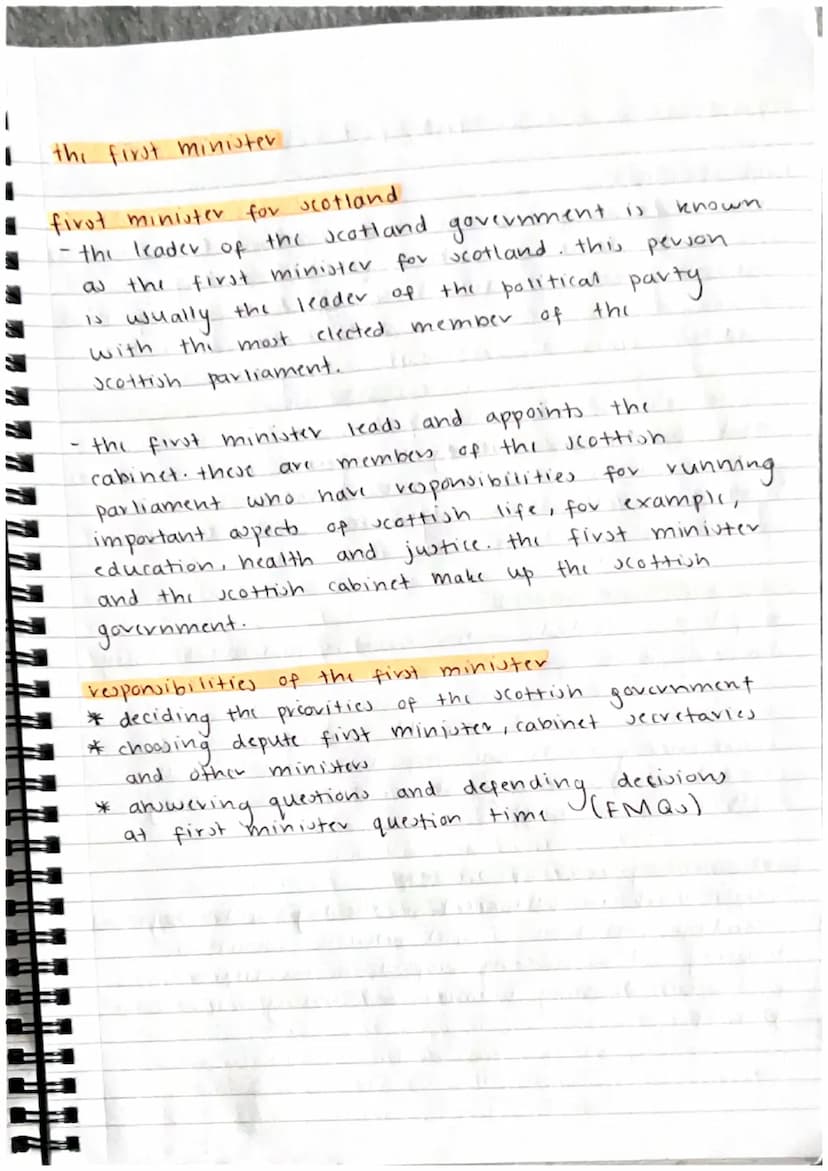 the first minister
first minister for scotland
- the leader of the scotland government is known
as the first minister for scotland. this person
is usually the leader of the political party
with the most elected member of the
scottish parliament.
- the first minister leads and appoints the
cabinet. these are members of the scottish
parliament who have responsibilities for running
important aspects of scottish life, for example,
education, health and justice. the first minister
and the scottish cabinet make up the scottish
government.
responsibilities of the first minister
* deciding the priorities of the scottish government
* choosing depute first minister, cabinet secretaries
and other ministers
* answering questions and defending decisions
at first minister question time (FMQs)